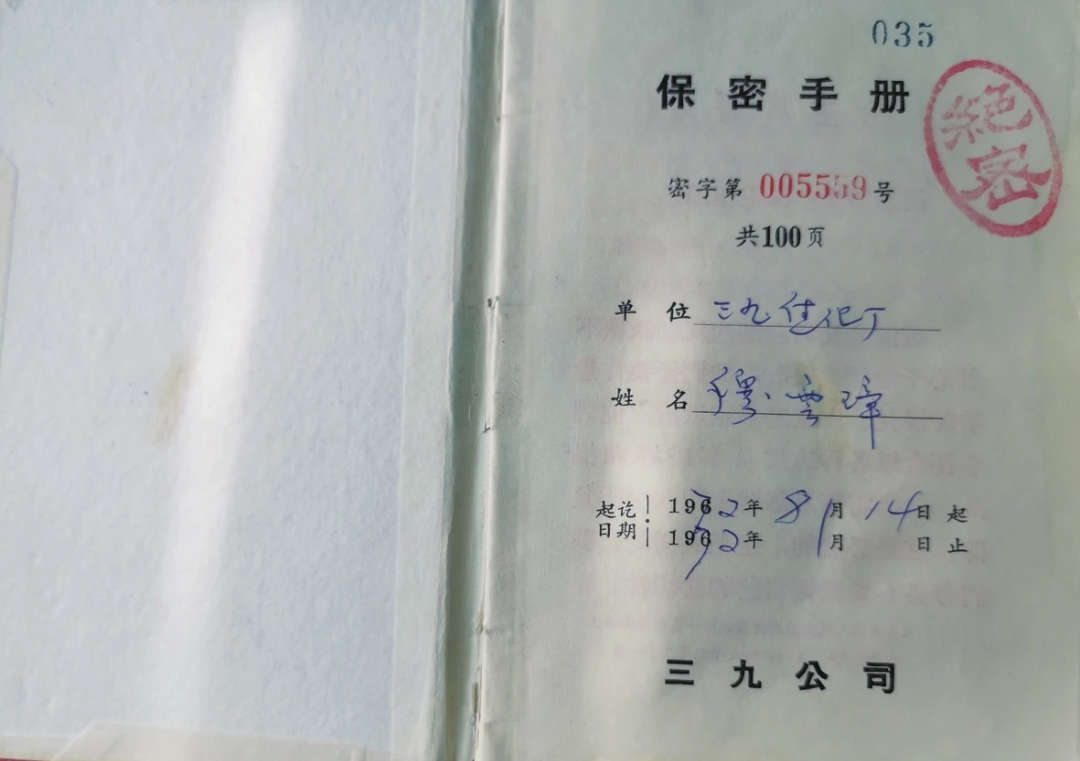 035
保密手册
絕密
密字第 005559 号
共100页
单位 三九
姓名 穆雲璋
起讫日期: 1972年8月14日起
1972年 月 日止
三九公司